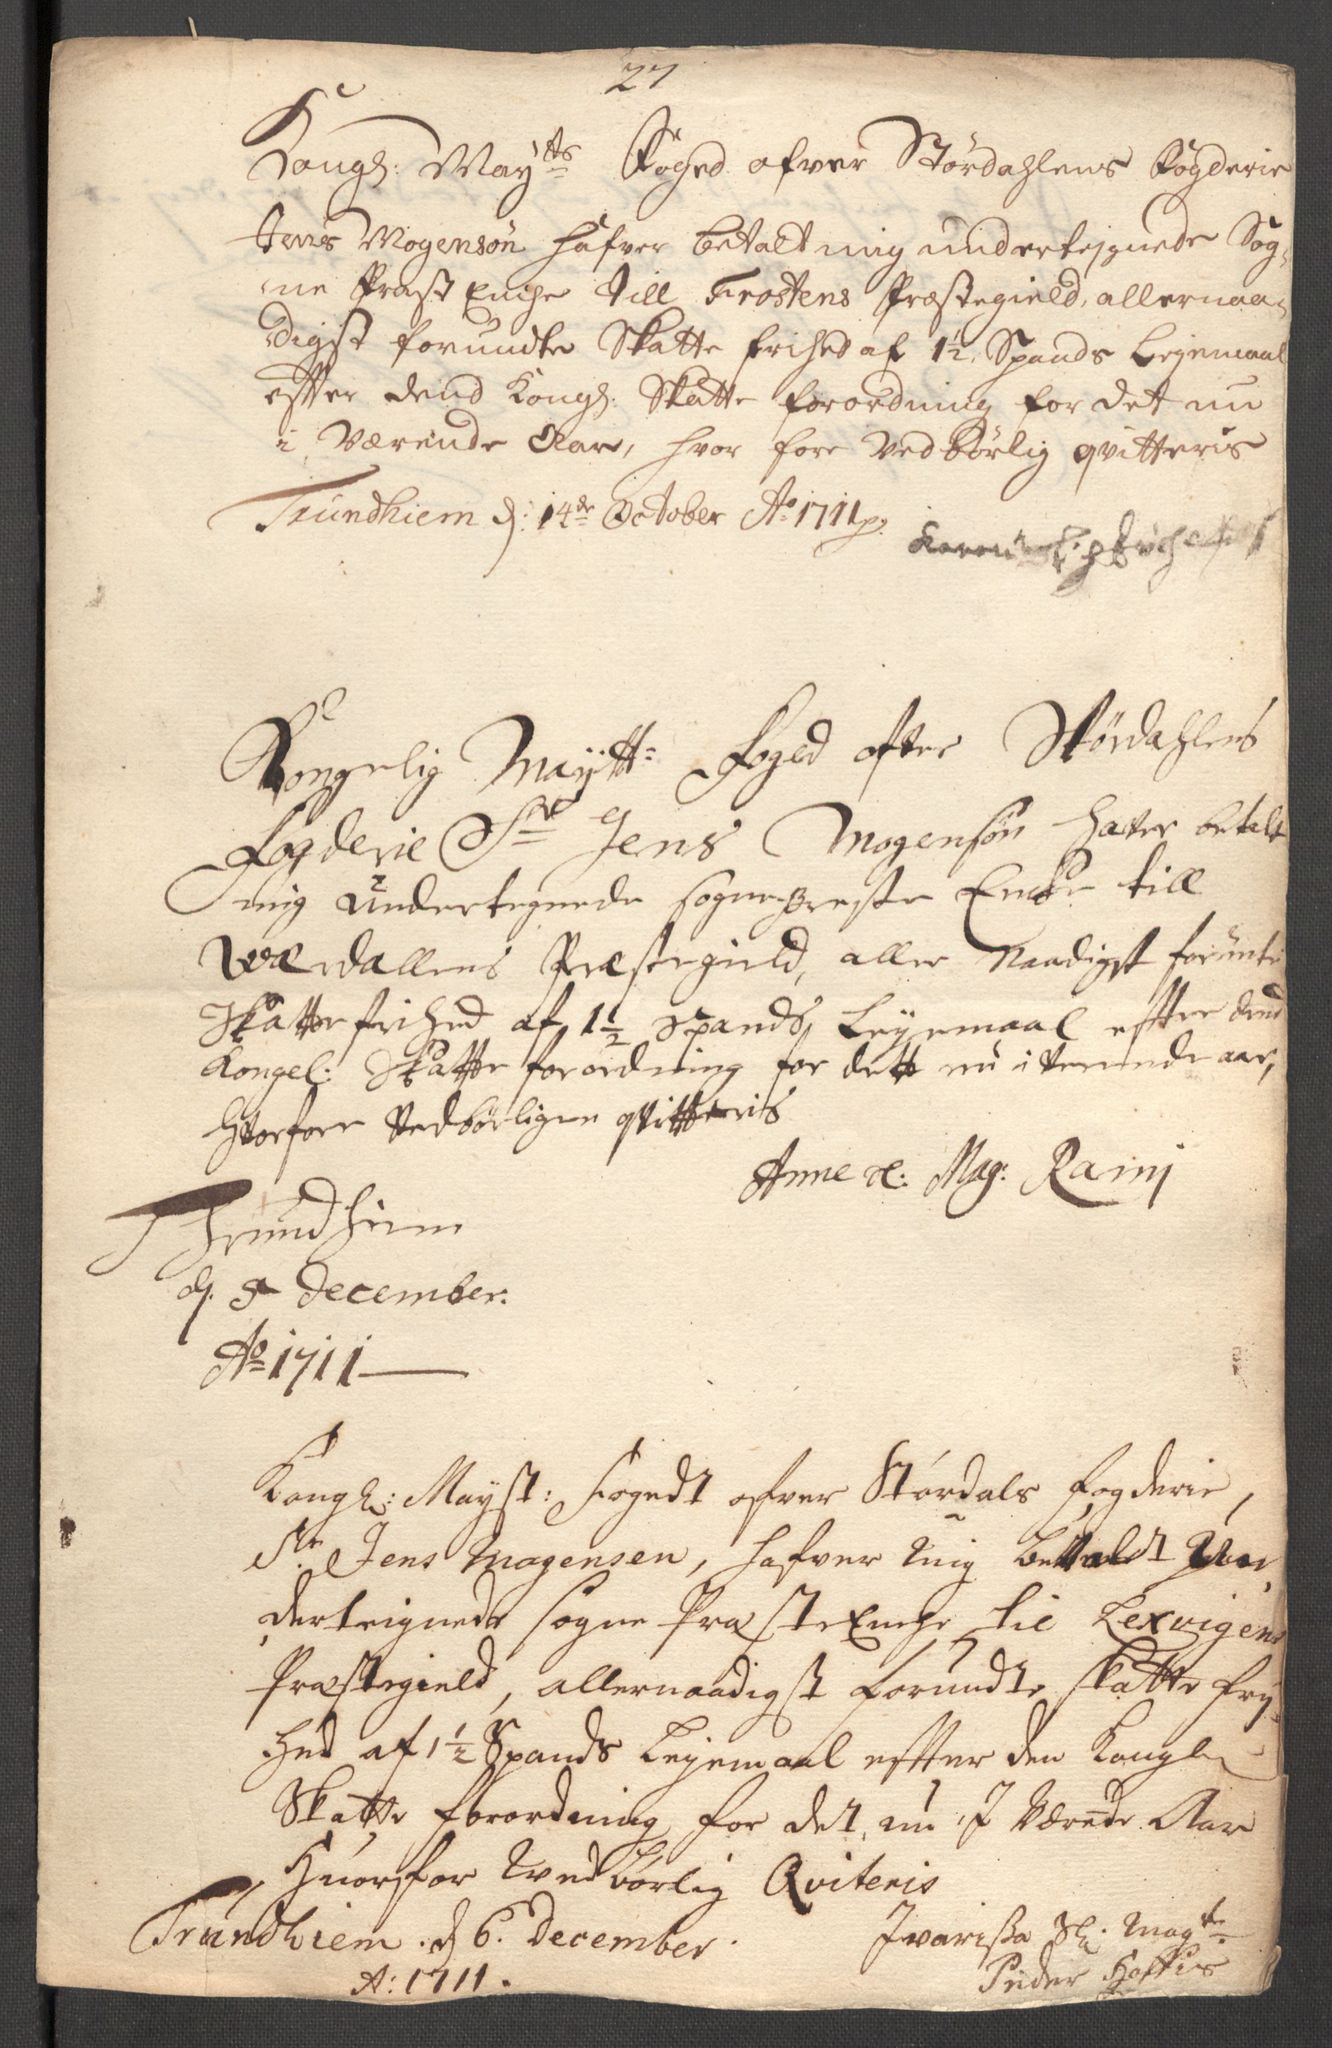 27
Kongl: Maytts Foged ofver Stördahlens Fogderie
Jens Mogensön hafver betalt mig undertejnede Sog-
ne Præst Enche till Frostens Præstegield, allernaa-
digst forundte Skatte frihed af 1½ Spands Lejemaal
effter dend Kongl: Skatte forordning for det nu
i Værende Aar, hvor fore Vedbörlig qvitteris
Trundhiem d: 14de October Ao 1711
Kongelig Maytts Foged ofver Stördahlens
Fogderie Sr Jens Mogensön haver betalt
mig undertegnede sogne Preste Encke till
Værdallens Præstegield, aller Naadigst forunte
Skatte frihed af 1½ Spands Leyemaal effter dend
Kongel: Skatte forordning for dett nu i verende aar,
hvorfore Vedbörligen qvitteris
Anne Sl: Mag: Rami
Thrundhiem
d. 5 December:
Ao 1711
Kongl: Mayst: Fogedt ofver Stördals Fogderie,
Sr Jens Mogensen, hafver mig betaldt Un
derteignede Sogne Præste Enche til Lexvigens
Præstegield, allernaadigst forundte skatte fry-
hed af 1½ Spands Leyemaal effter den Kongle
Skatte forordning for det nu I Værende Aar
Huorfor Wedbörlig Qviteris
Trundhiem d 6. December.
A: 1711.
Ivarissa Sl. Magt:
Peder